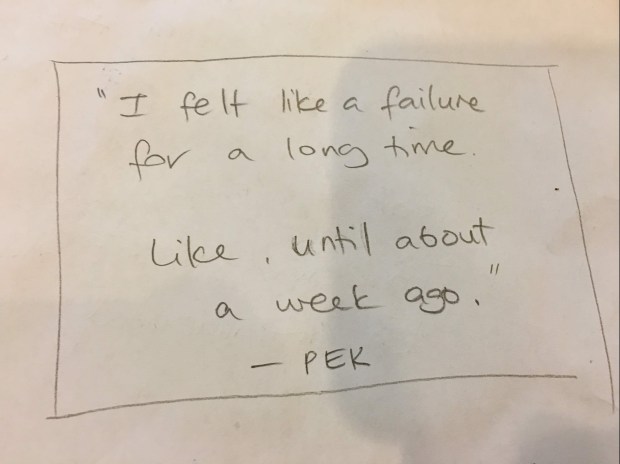 "I felt like a failure
for a long time.
Like, until about
a week ago."
— PEK